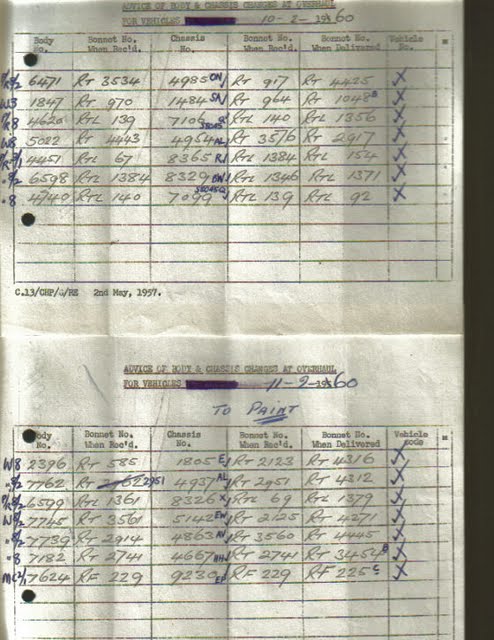 ADVICE OF BODY & CHASSIS CHANGES AT OVERHAUL
FOR VEHICLES 10-2-1960
Body No. Bonnet No. When Rec'd. Chassis No. Bonnet No. When Rec'd. Bonnet No. When Delivered Vehicle No.
6471 RT 3534 4985 ON RT 917 RT 4425 X
W3 1847 RT 970 1484 SN RT 964 RT 1048 B X
4620 RTL 139 7106 RTL 140 RTL 1356 X
W8 5022 RT 4443 4954 AL RT 3516 RT 2917 X
4451 RTL 67 8365 RJ RTL 1384 RTL 154 X
6598 RTL 1384 8329 BW RTL 1346 RTL 1371 X
"8 4740 RTL 140 7099 RTL 139 RTL 92 X
C.13/CHP/G/RE 2nd May, 1957.
ADVICE OF BODY & CHASSIS CHANGES AT OVERHAUL
FOR VEHICLES 11-2-1960
TO PAINT
Body No. Bonnet No. When Rec'd. Chassis No. Bonnet No. When Rec'd. Bonnet No. When Delivered Vehicle Code
W8 2396 RT 585 1805 E RT 2123 RT 4316 X
7762 RT 2951 4937 AL RT 2951 RT 4212 X
6599 RTL 1361 8326 X RTL 69 RTL 1379 X
W8 7745 RT 3561 5142 EW RT 2125 RT 4271 X
7739 RT 2914 4863 AV RT 3560 RT 4445 X
"8 7182 RT 2741 4667 HH RT 2741 RT 3454 B X
MC2/1 7624 RF 229 9230 EP RF 229 RF 225 C X